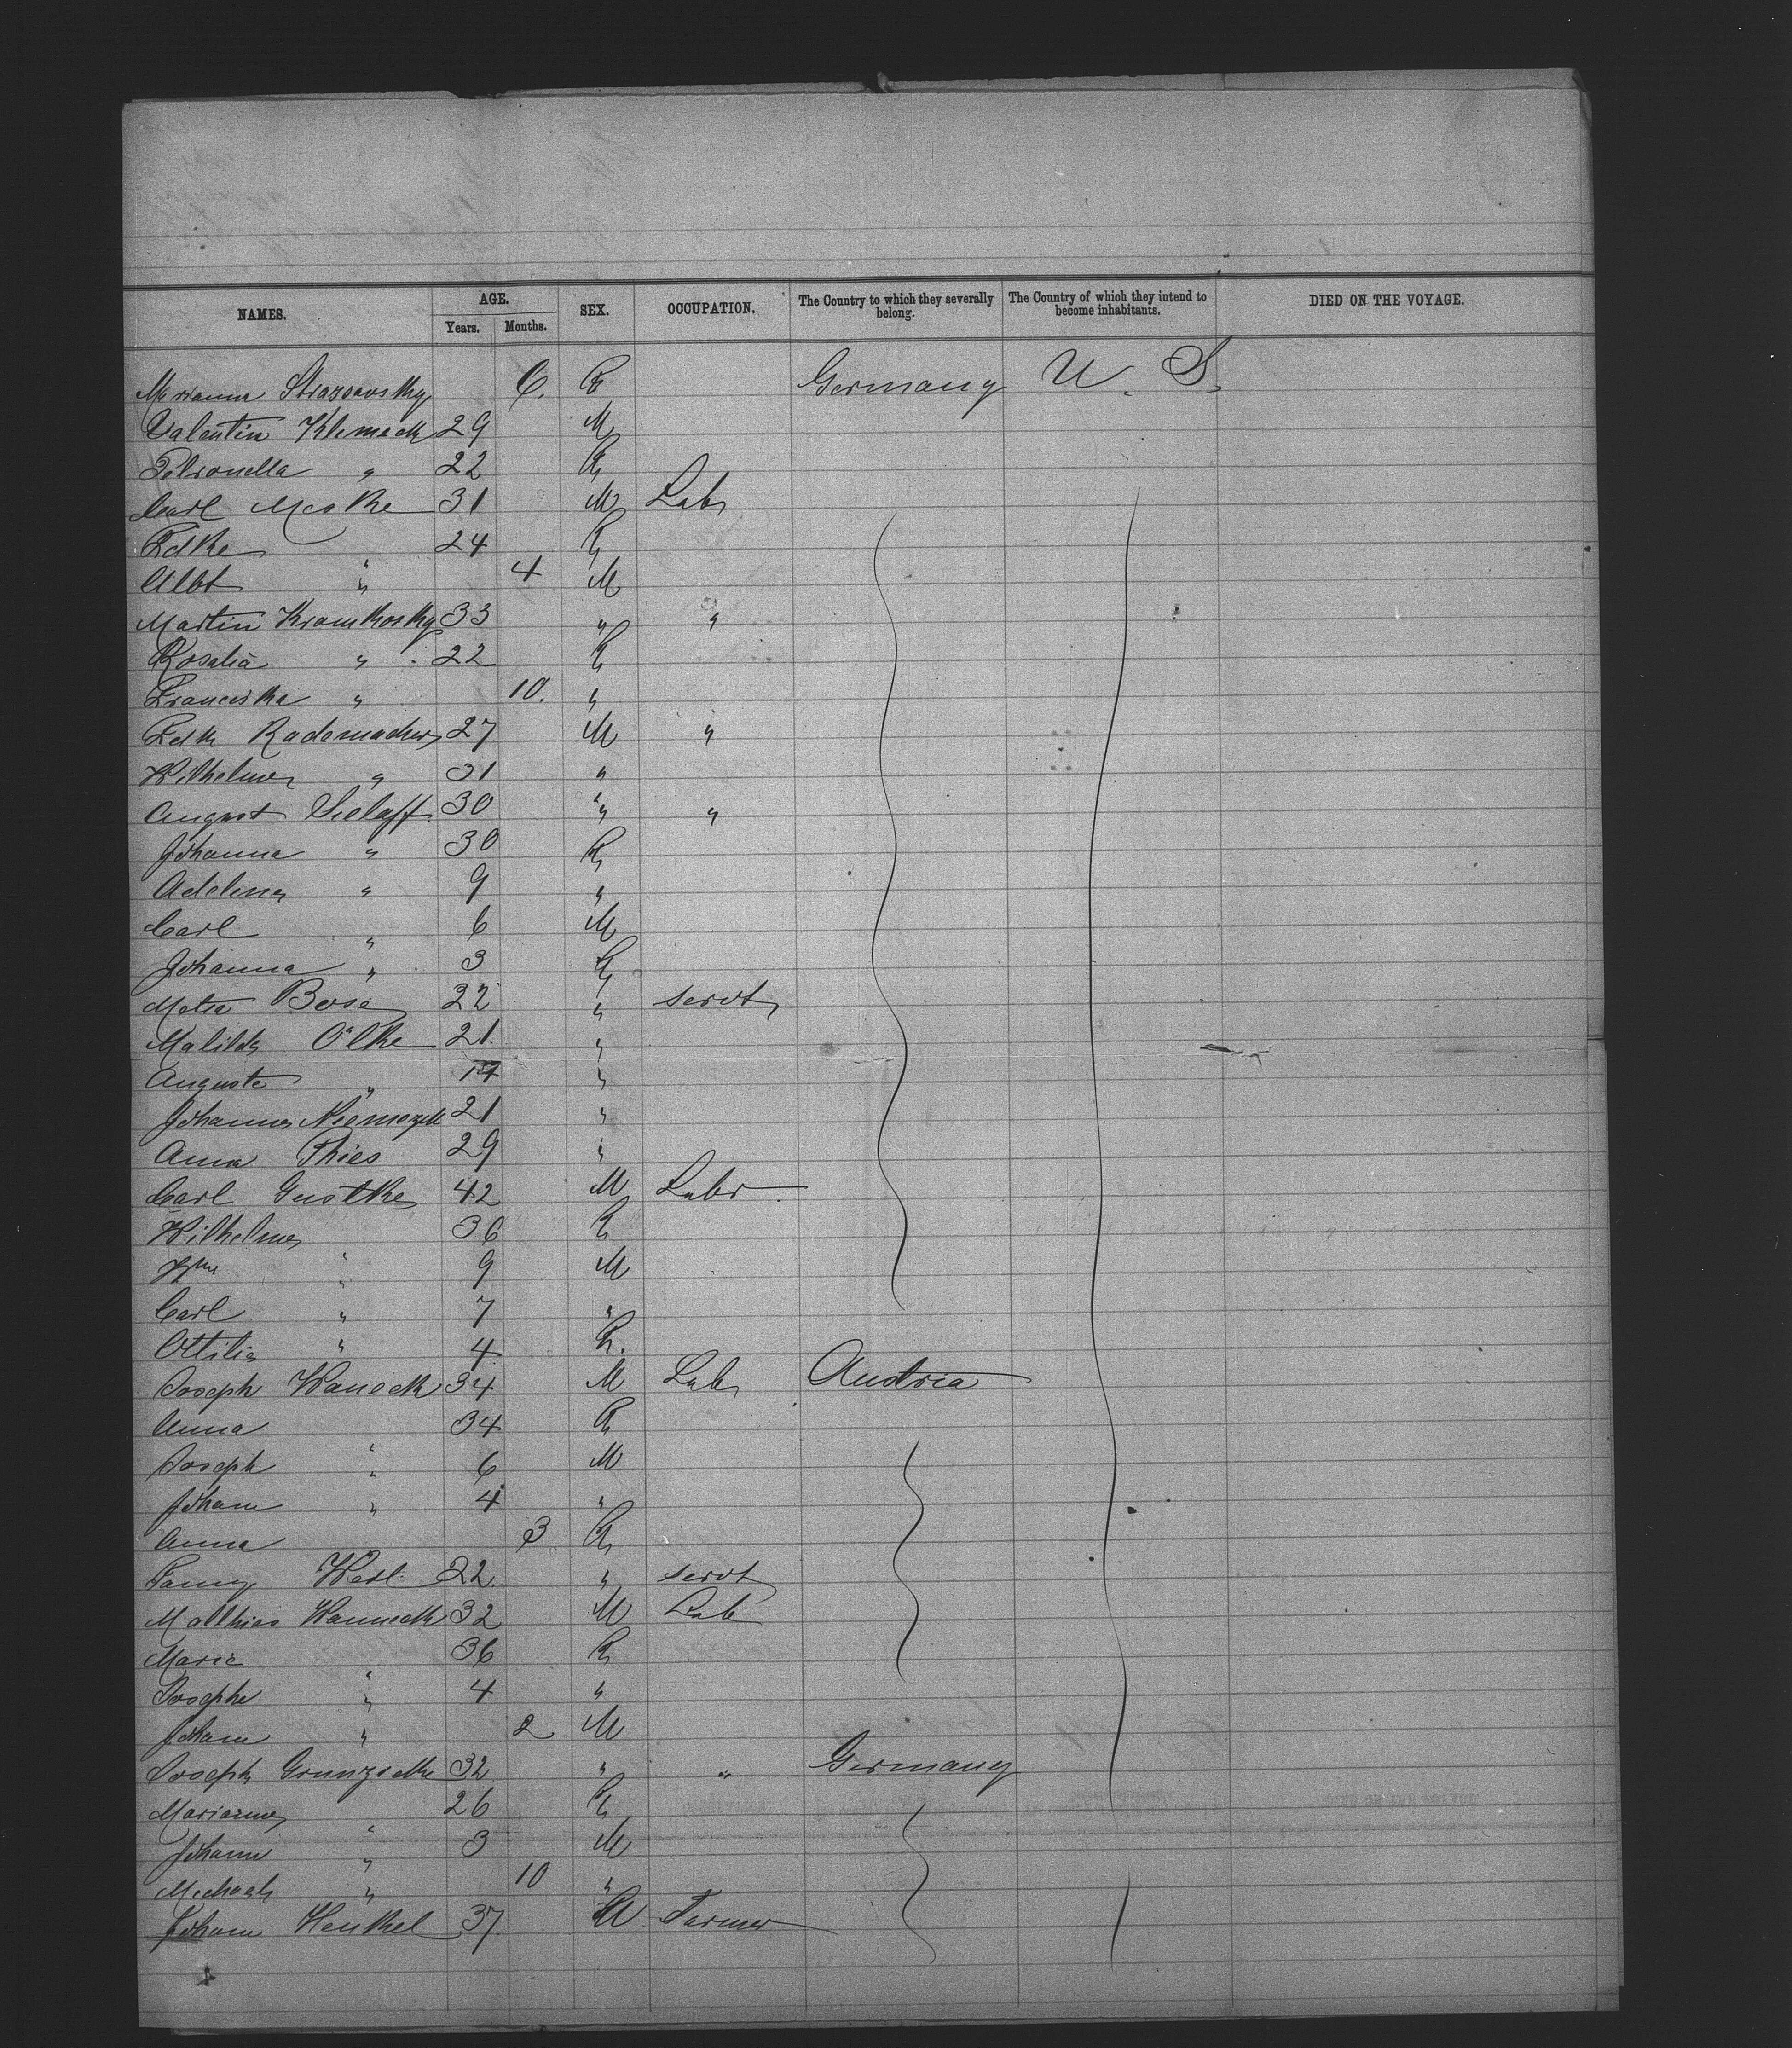 NAMES. AGE. Years. Months. SEX. OCCUPATION. The Country to which they severally belong. The Country of which they intend to become inhabitants. DIED ON THE VOYAGE.
Marianna 6. F Germany U. S.
Valentin Klemeck 29 M
Petronella " 22 F
Carl Meske 31 M Lab
24 F
Albt " 4 M
Martin Kramkosky 33 " "
Rosalia " 22 F
Franciska " 10. "
Radamacher 27 M "
Wilhelme " 31 "
August Sielaff 30 " "
Johanna " 30 F
Adeline " 9 "
Carl " 6 M
Johanna " 3 F
Meta Bose 22 " servt
Matilda Ölke 21 "
Auguste " 17 "
Johanna Niemczek 21 "
Anna Thies 29 "
Carl Gustke 42 M Labr
Wilhelme " 36 F
Wm " 9 M
Carl " 7 "
Ottilie " 4 F.
Joseph Waneck 34 M Lab Austria
Anna " 34 F
Joseph " 6 M
Johann " 4 "
Anna 3 F
Fanny 22 " servt
Mathias Wanneck 32 M Lab
Marie " 36 F
Josepha " 4 "
Johann " 2 M
Joseph 32 " " Germany
Marianne " 26 F
Johann " 3 M
Michael " 10 "
Johann Henkel 37 M Farmer